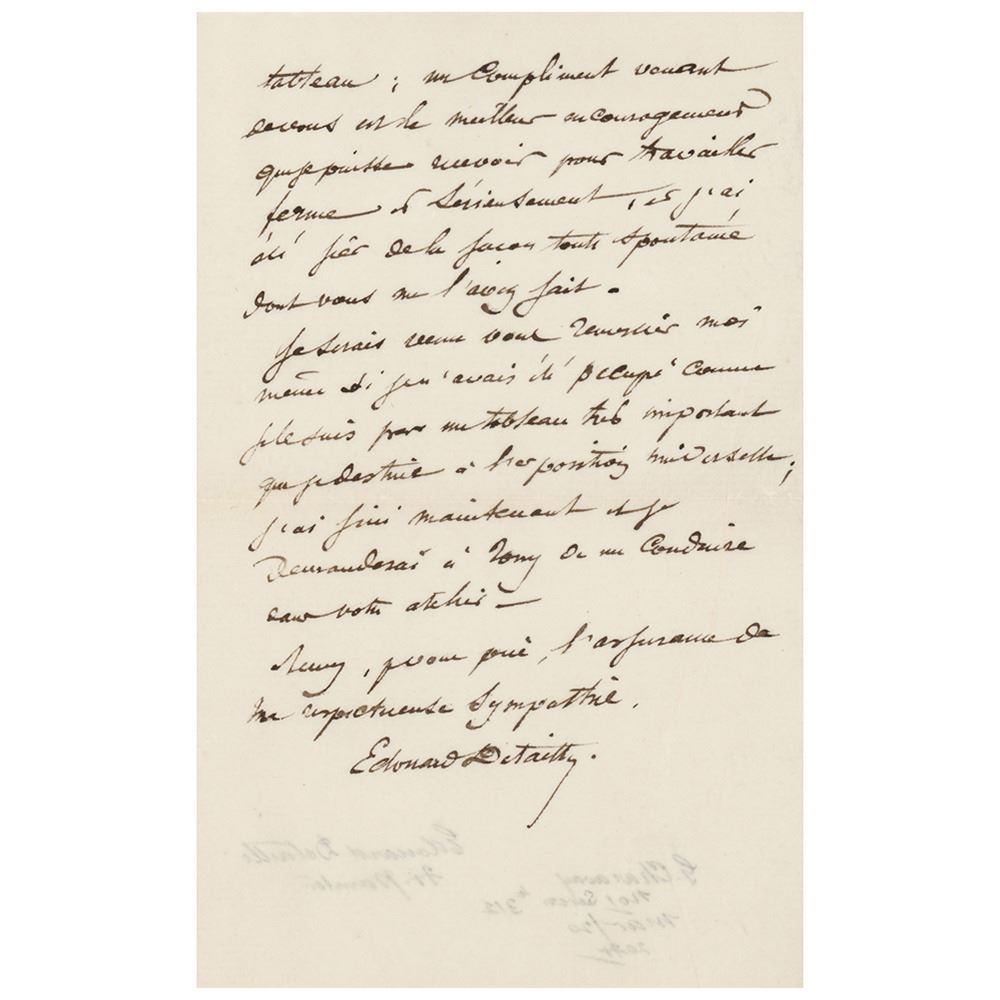 tableau ; un compliment venant
de vous est le meilleur encouragement
que je puisse recevoir pour travailler
ferme et sérieusement, et j'ai
été fier de la façon toute spontanée
dont vous me l'avez fait.
Je serais venu vous remercier moi
même si je n'avais été occupé comme
je le suis par un tableau très important
que je destine à l'exposition universelle ;
j'ai fini maintenant et je
demanderai à Tony de me conduire
dans votre atelier —
Recevez, je vous prie, l'assurance de
ma respectueuse sympathie.
Edouard Detaille.
Edouard Detaille
Fr. Painter
G. Charavay
312